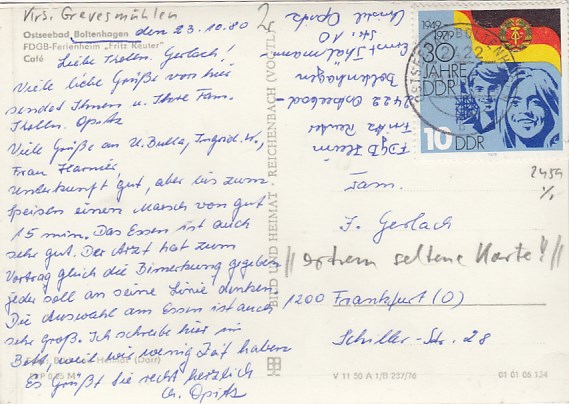 Krs. Grevesmühlen
Ostseebad Boltenhagen den 23.10.80
FDGB-Ferienheim „Fritz Reuter"
Café
Liebe Gerlach!
Viele liebe Grüße von hier
sendet Ihnen u. Ihre Fam.
Opitz
Viele Grüße an U. Bulla, Ingrid. W.,
Frau
Unterkunft gut, aber bis zum
speisen einen Marsch von gut
15 min. Das Essen ist auch
sehr gut. Der Arzt hat zum
Vortrag gleich die Bemerkung gegeben
jeder soll an seine Linie denken.
Die Auswahl am Essen ist auch
sehr groß. Ich schreibe hier im
Bett, weil wir wenig Zeit haben
Es Grüßt Sie recht herzlich
Ch. Opitz
(Dorr)
0,25 M
2
Christl Opitz
Ernst Thälmann-
Str. 10
2422 Ostseebad
Boltenhagen
FDGB Heim
Fritz Reuter
BILD UND HEIMAT · REICHENBACH (VOGTL)
1949
1979
30
JAHRE
DDR
10 DDR
2459
Fam.
J. Gerlach
// extrem seltene Karte!! //
1200 Frankfurt (O)
Schiller-Str. 28
V 11 50 A 1/B 237/76
01 01 06 134